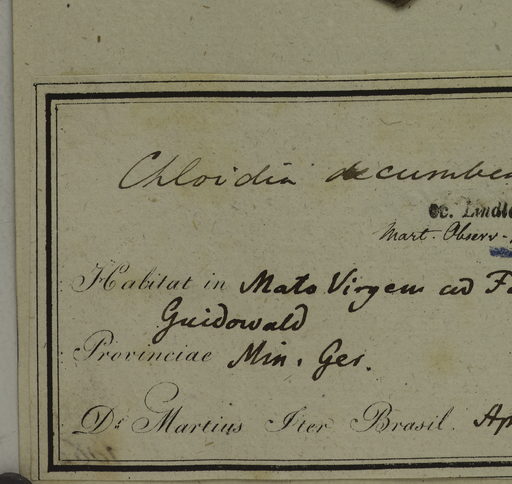 Chloidia decumben
ec. Lindle
Mart. Observ.
Habitat in Mato Virgem ad Fa
Guidowald
Provinciae Min. Ger.
Dr Martius Iter Brasil. Ap